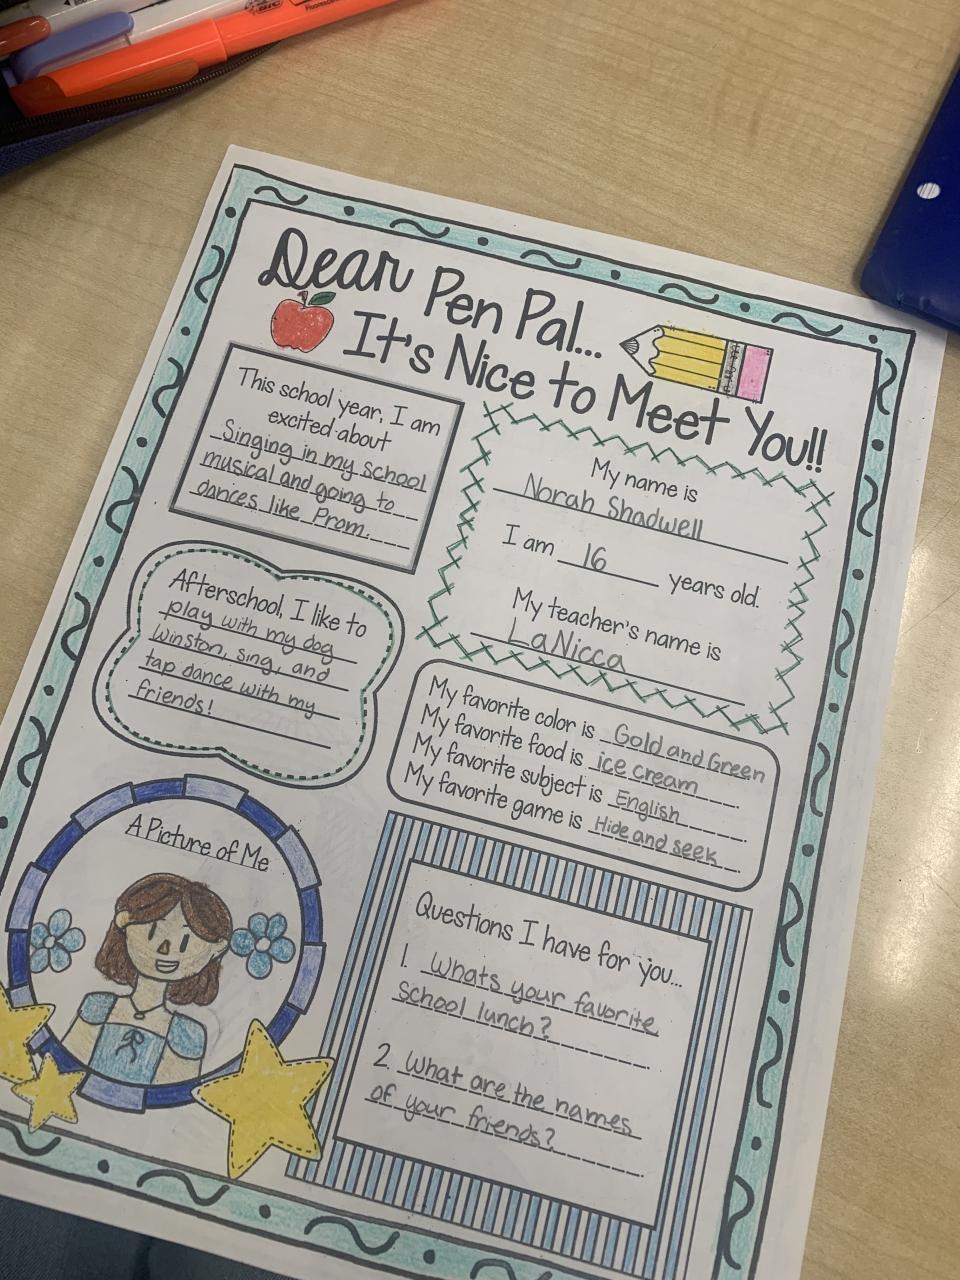 BIC
Dear Pen Pal...
It's Nice to Meet You!!
This school year, I am
excited about
Singing in my school
musical and going to
dances like Prom.
My name is
Norah Shadwell
I am 16 years old.
My teacher's name is
LaNicca
Afterschool, I like to
play with my dog
Winston, sing, and
tap dance with my
friends!
My favorite color is Gold and Green
My favorite food is ice cream.
My favorite subject is English.
My favorite game is Hide and seek.
A Picture of Me
Questions I have for you...
1. Whats your favorite
school lunch?
2. What are the names
of your friends?